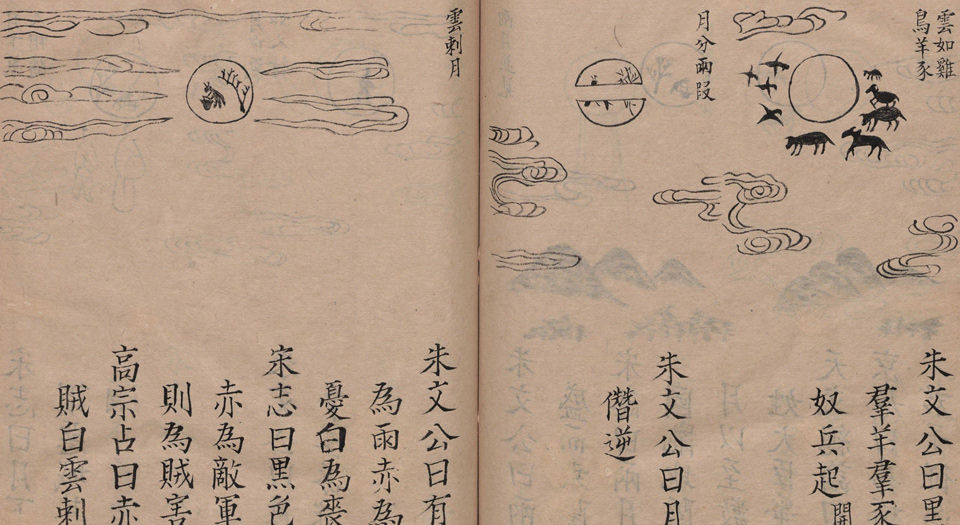 雲如雞
鳥羊豕
朱文公曰
羣羊羣豕
奴兵起
月分兩段
朱文公曰月
僭逆
雲刺月
朱文公曰有
為雨赤為
憂白為喪
宋志曰黑色
赤為敵軍
則為賊害
高宗占曰赤
賊白雲刺